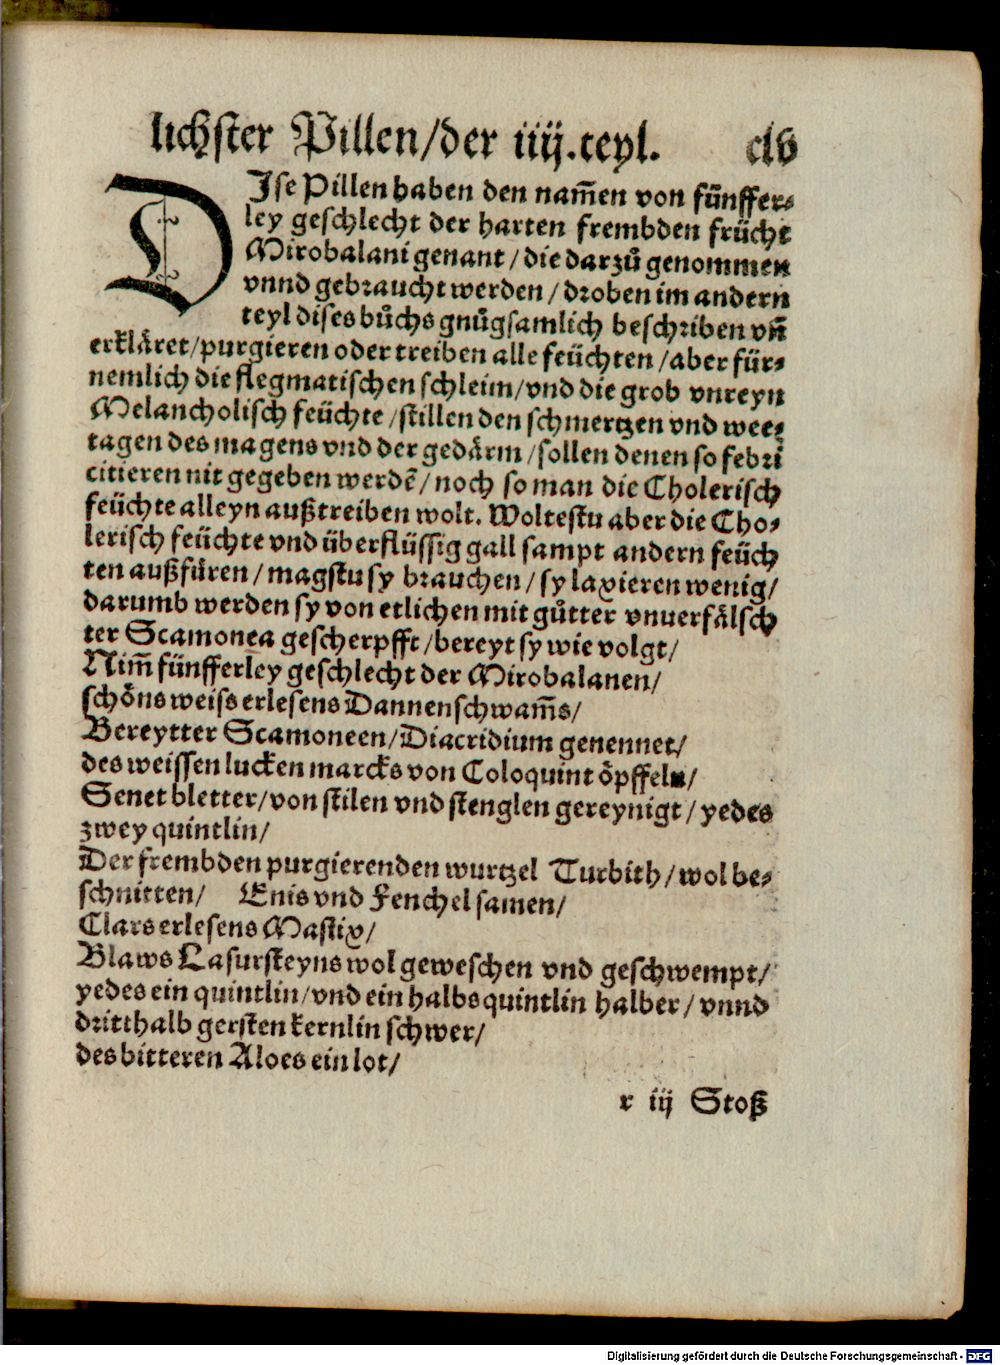 lichster Pillen/der iiij.teyl. clv
DIse Pillen haben den nam̃en von fünffer-
ley geschlecht der harten frembden frücht
Mirobalani genant / die darzů genommen
vnnd gebraucht werden / droben im andern
teyl dises bůchs gnůgsamlich beschriben vñ
erkläret/purgieren oder treiben alle feüchten /aber für-
nemlich die flegmatischen schleim/vnd die grob vnreyn
Melancholisch feüchte /stillen den schmertzen vnd wee-
tagen des magens vnd der gedärm /sollen denen so febri
citieren nit gegeben werdẽ/ noch so man die Cholerisch
feüchte alleyn außtreiben wolt. Woltestu aber die Cho-
lerisch feüchte vnd überflüssig gall sampt andern feüch
ten außfüren / magstu sy brauchen / sy laxieren wenig/
darumb werden sy von etlichen mit gůtter vnuerfälsch
ter Scamonea gescherpfft /bereyt sy wie volgt/
Nim̃ fünfferley geschlecht der Mirobalanen/
schöns weiss erlesens Dannenschwam̃s/
Bereytter Scamoneen/Diacridium genennet/
des weissen lucken marcks von Coloquint öpffeln/
Senet bletter/von stilen vnd stenglen gereynigt / yedes
zwey quintlin/
Der frembden purgierenden wurtzel Turbith/wol be-
schnitten/ Enis vnd Fenchel samen/
Clars erlesens Mastix/
Blaws Lasursteyns wol geweschen vnd geschwempt/
yedes ein quintlin/vnd ein halbs quintlin halber / vnnd
dritthalb gersten kernlin schwer/
des bitteren Aloes ein lot/
r iij Stoß
Digitalisierung gefördert durch die Deutsche Forschungsgemeinschaft - DFG